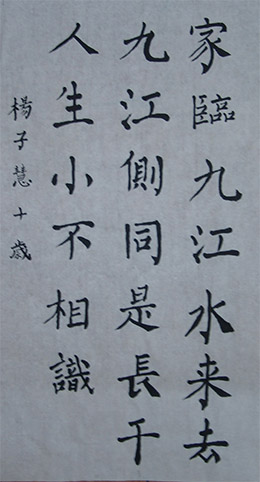 家臨九江水来去
九江側同是長干
人生小不相識
楊子慧十歲